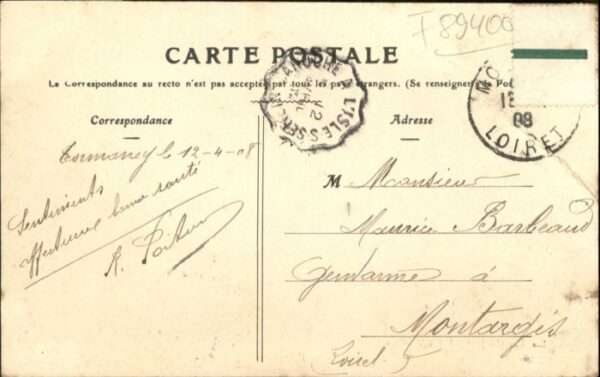 F 89400
CARTE POSTALE
La Correspondance au recto n'est pas acceptée par tous les pays étrangers. (Se renseigner à la Pos
Correspondance
Adresse
A L'ISLE-S-SEREIN
12
LOIRET
08
12-4-08
Sentiments
affectueux bonne santé
M Monsieur
Maurice Barbeaud
Gendarme à
Montargis
Loiret